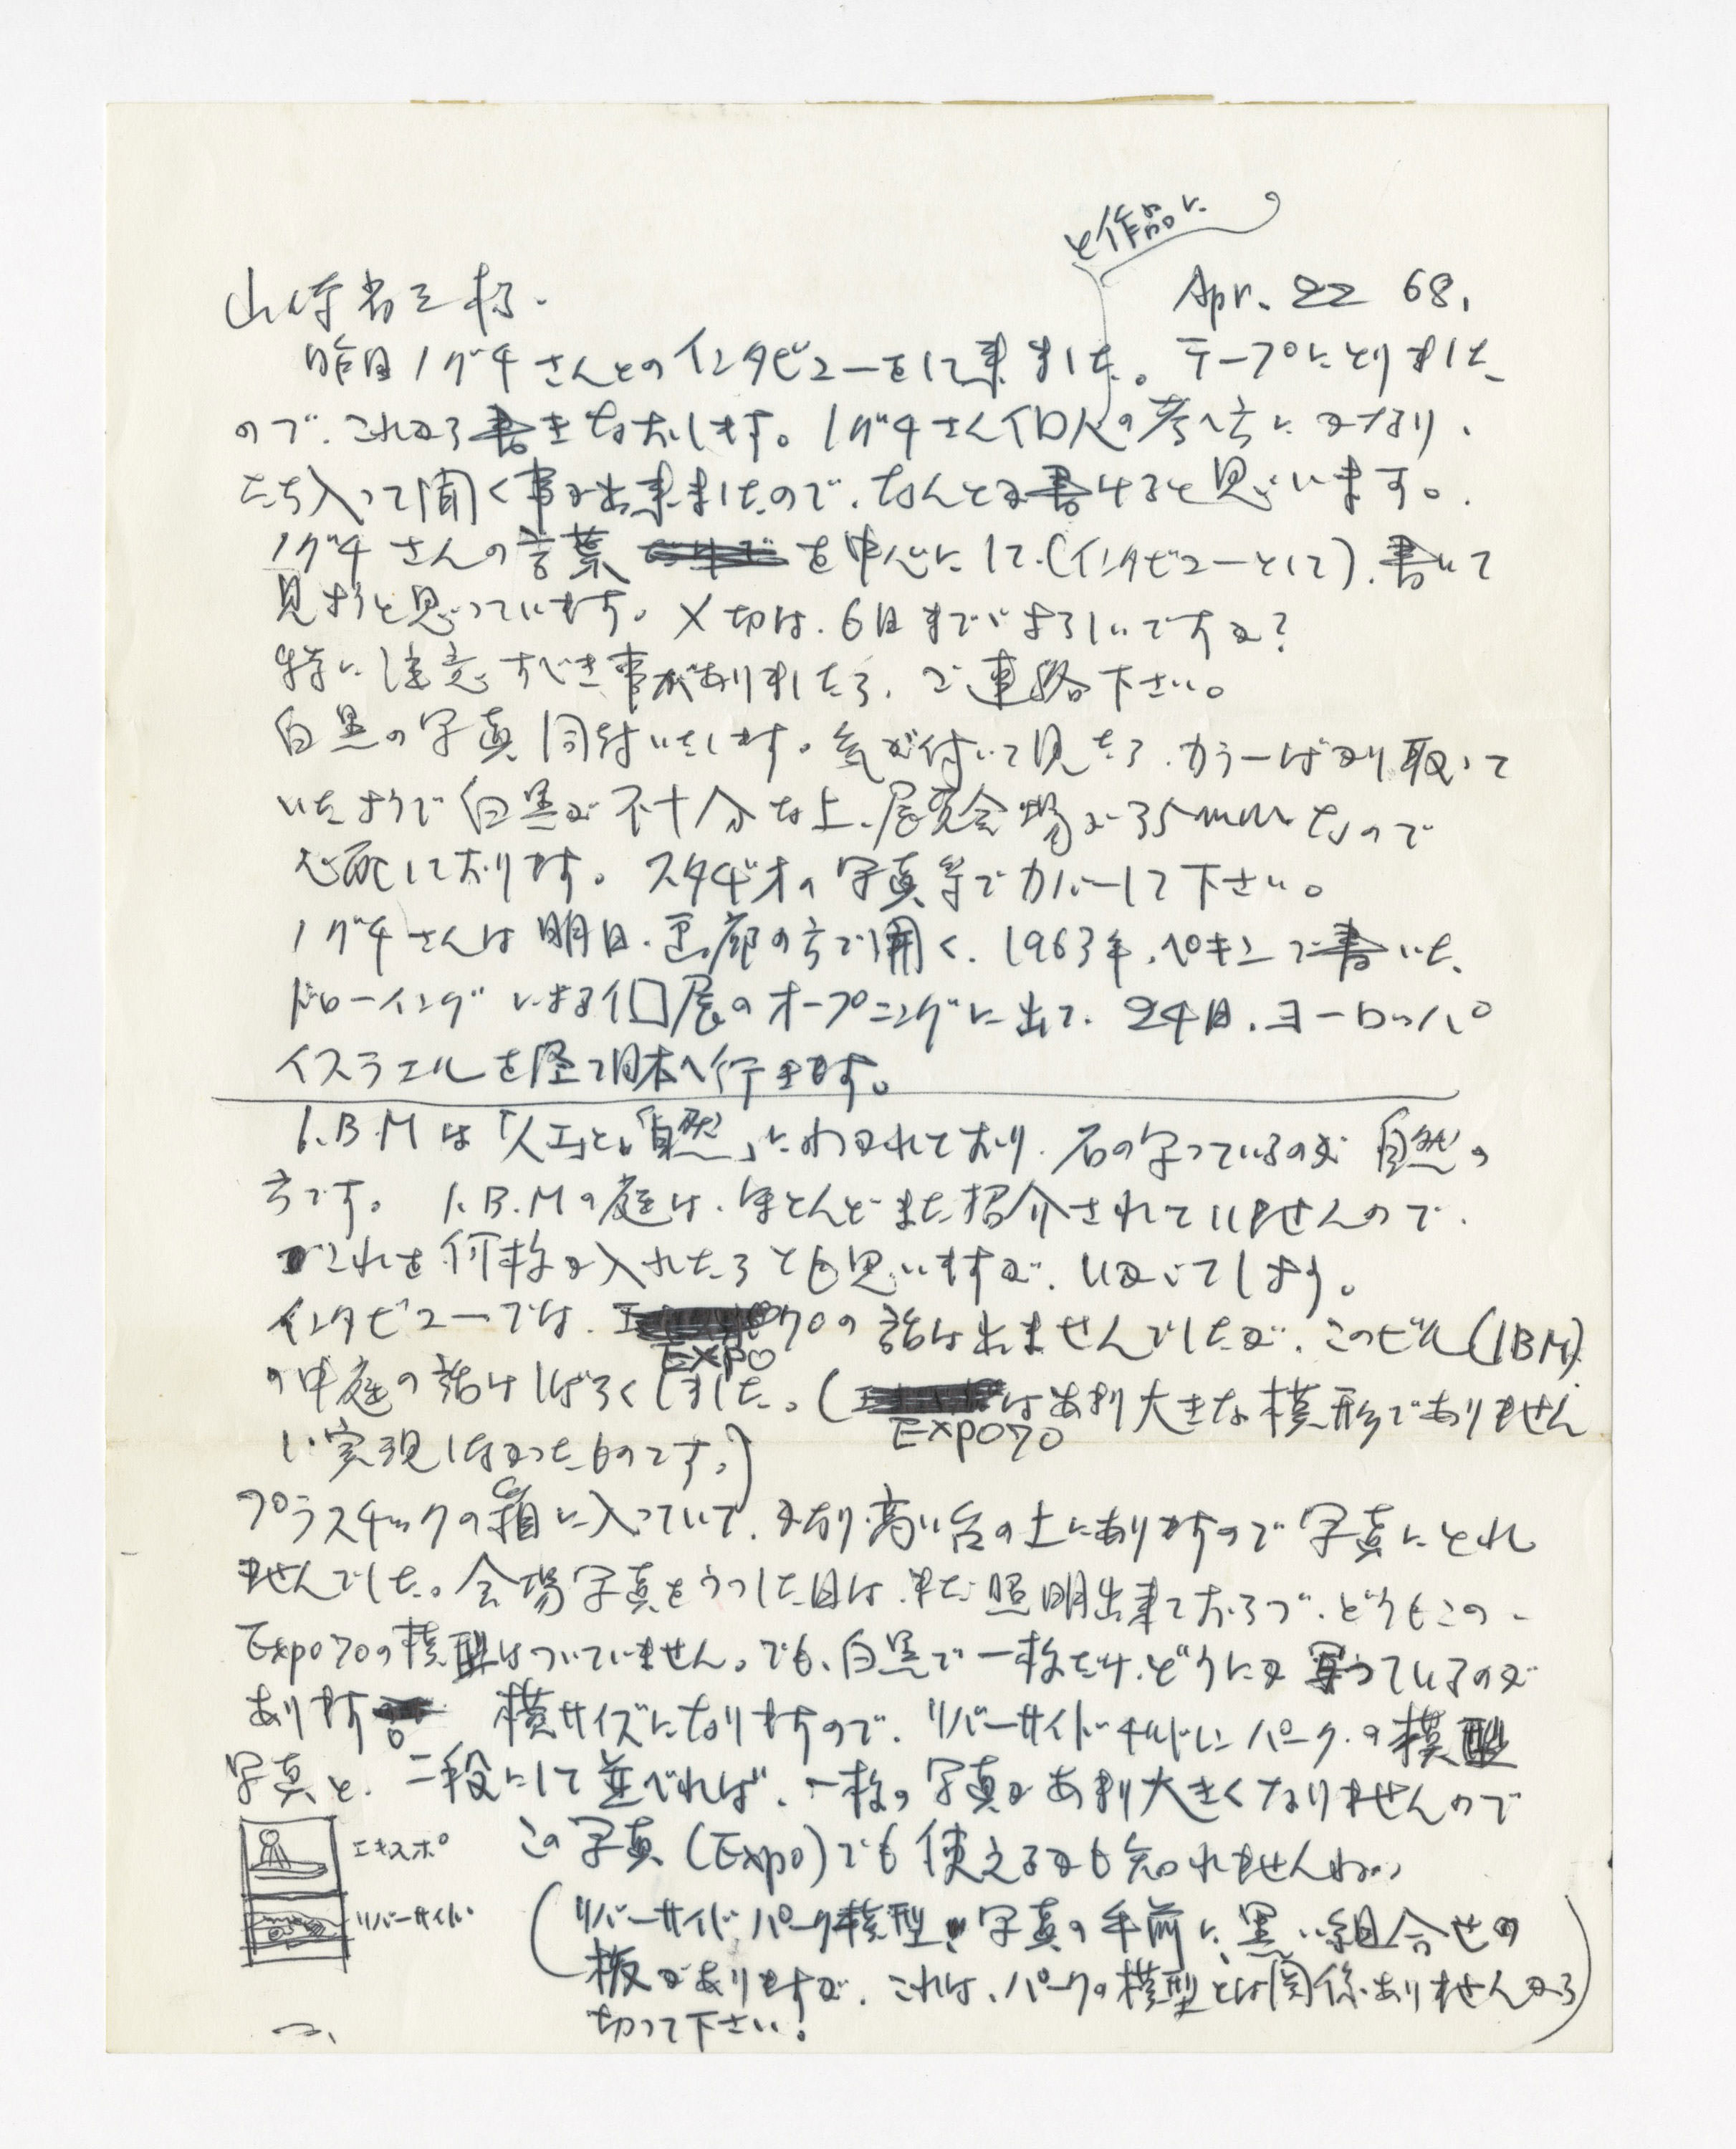 と作品に
山崎省三様.
Apr. 22 68.
昨日ノグチさんとのインタビューをして来ました。テープにとりました
ので、これから書きなおします。ノグチさん個人の考へ方にかなり、
たち入って聞く事が出来ましたので、なんとか書けると思います。
ノグチさんの言葉を中心にして(インタビューとして)、書いて
見ようと思っています。〆切は、6日まででよろしいですか?
特に注意すべき事がありましたら、ご連絡下さい。
白黒の写真同封いたします。気が付いて見たら、カラーばかり取って
いたようで白黒が不十分な上、展覧会場が35mmなので
心配しております。スタヂオの写真等でカバーして下さい。
ノグチさんは明日、画廊の方で開く、1963年、ペキンで書いた
ドローイングによる個展のオープニングに出て、24日、ヨーロッパ
イスラエルを経て日本へ行きます。
I.B.Mは「人工」と「自然」にわかれており、石の写っているのが自然の
方です。I.B.Mの庭は、ほとんどまだ紹介されていませんので、
これを何枚か入れたらとも思いますが、いかがでしょう。
インタビューでは、EXPO70の話は出ませんでしたが、このビル(IBM)
の中庭の話はしばらくしました。(EXPO70はあまり大きな模形でありません
し実現しなかったものです。)
プラスチックの箱に入っていて、かなり高い台の上にありますので写真にとれ
ませんでした。会場写真をうつした日は、まだ照明出来ておらづ、どうもこの
Expo70の模型はついていません。でも、白黒で一枚だけ、どうにか写っているのが
あります。横サイズになりますので、リバーサイドチルドレンパークの模型
写真と、二段にして並べれば、一枚の写真があまり大きくなりませんので
この写真(Expo)でも使えるかも知れませんね。
エキスポ
リバーサイド
(リバーサイドパーク模型の写真の手前に、黒い組合せの
板がありますが、これは、パークの模型とは関係ありませんから
切って下さい!)